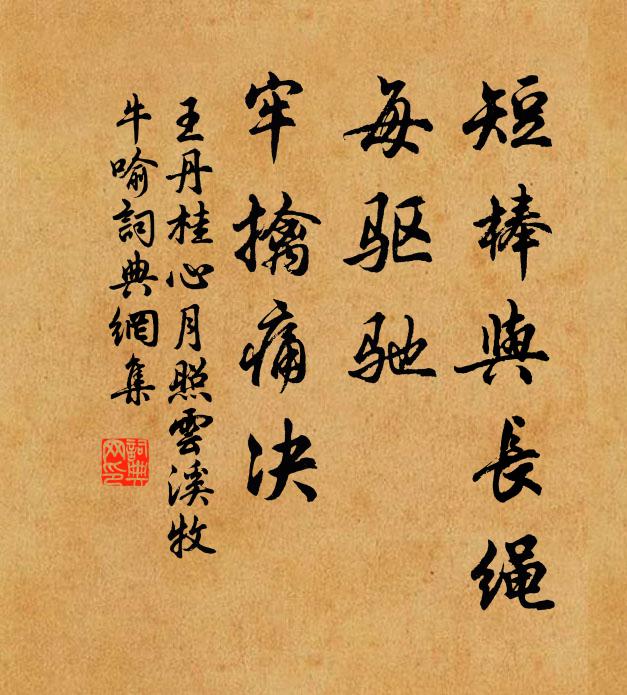 短棒與長绳
每驱驰
牢擒痛决
王丹桂心月照雲溪牧
牛喻詞典網集
詞典
网印